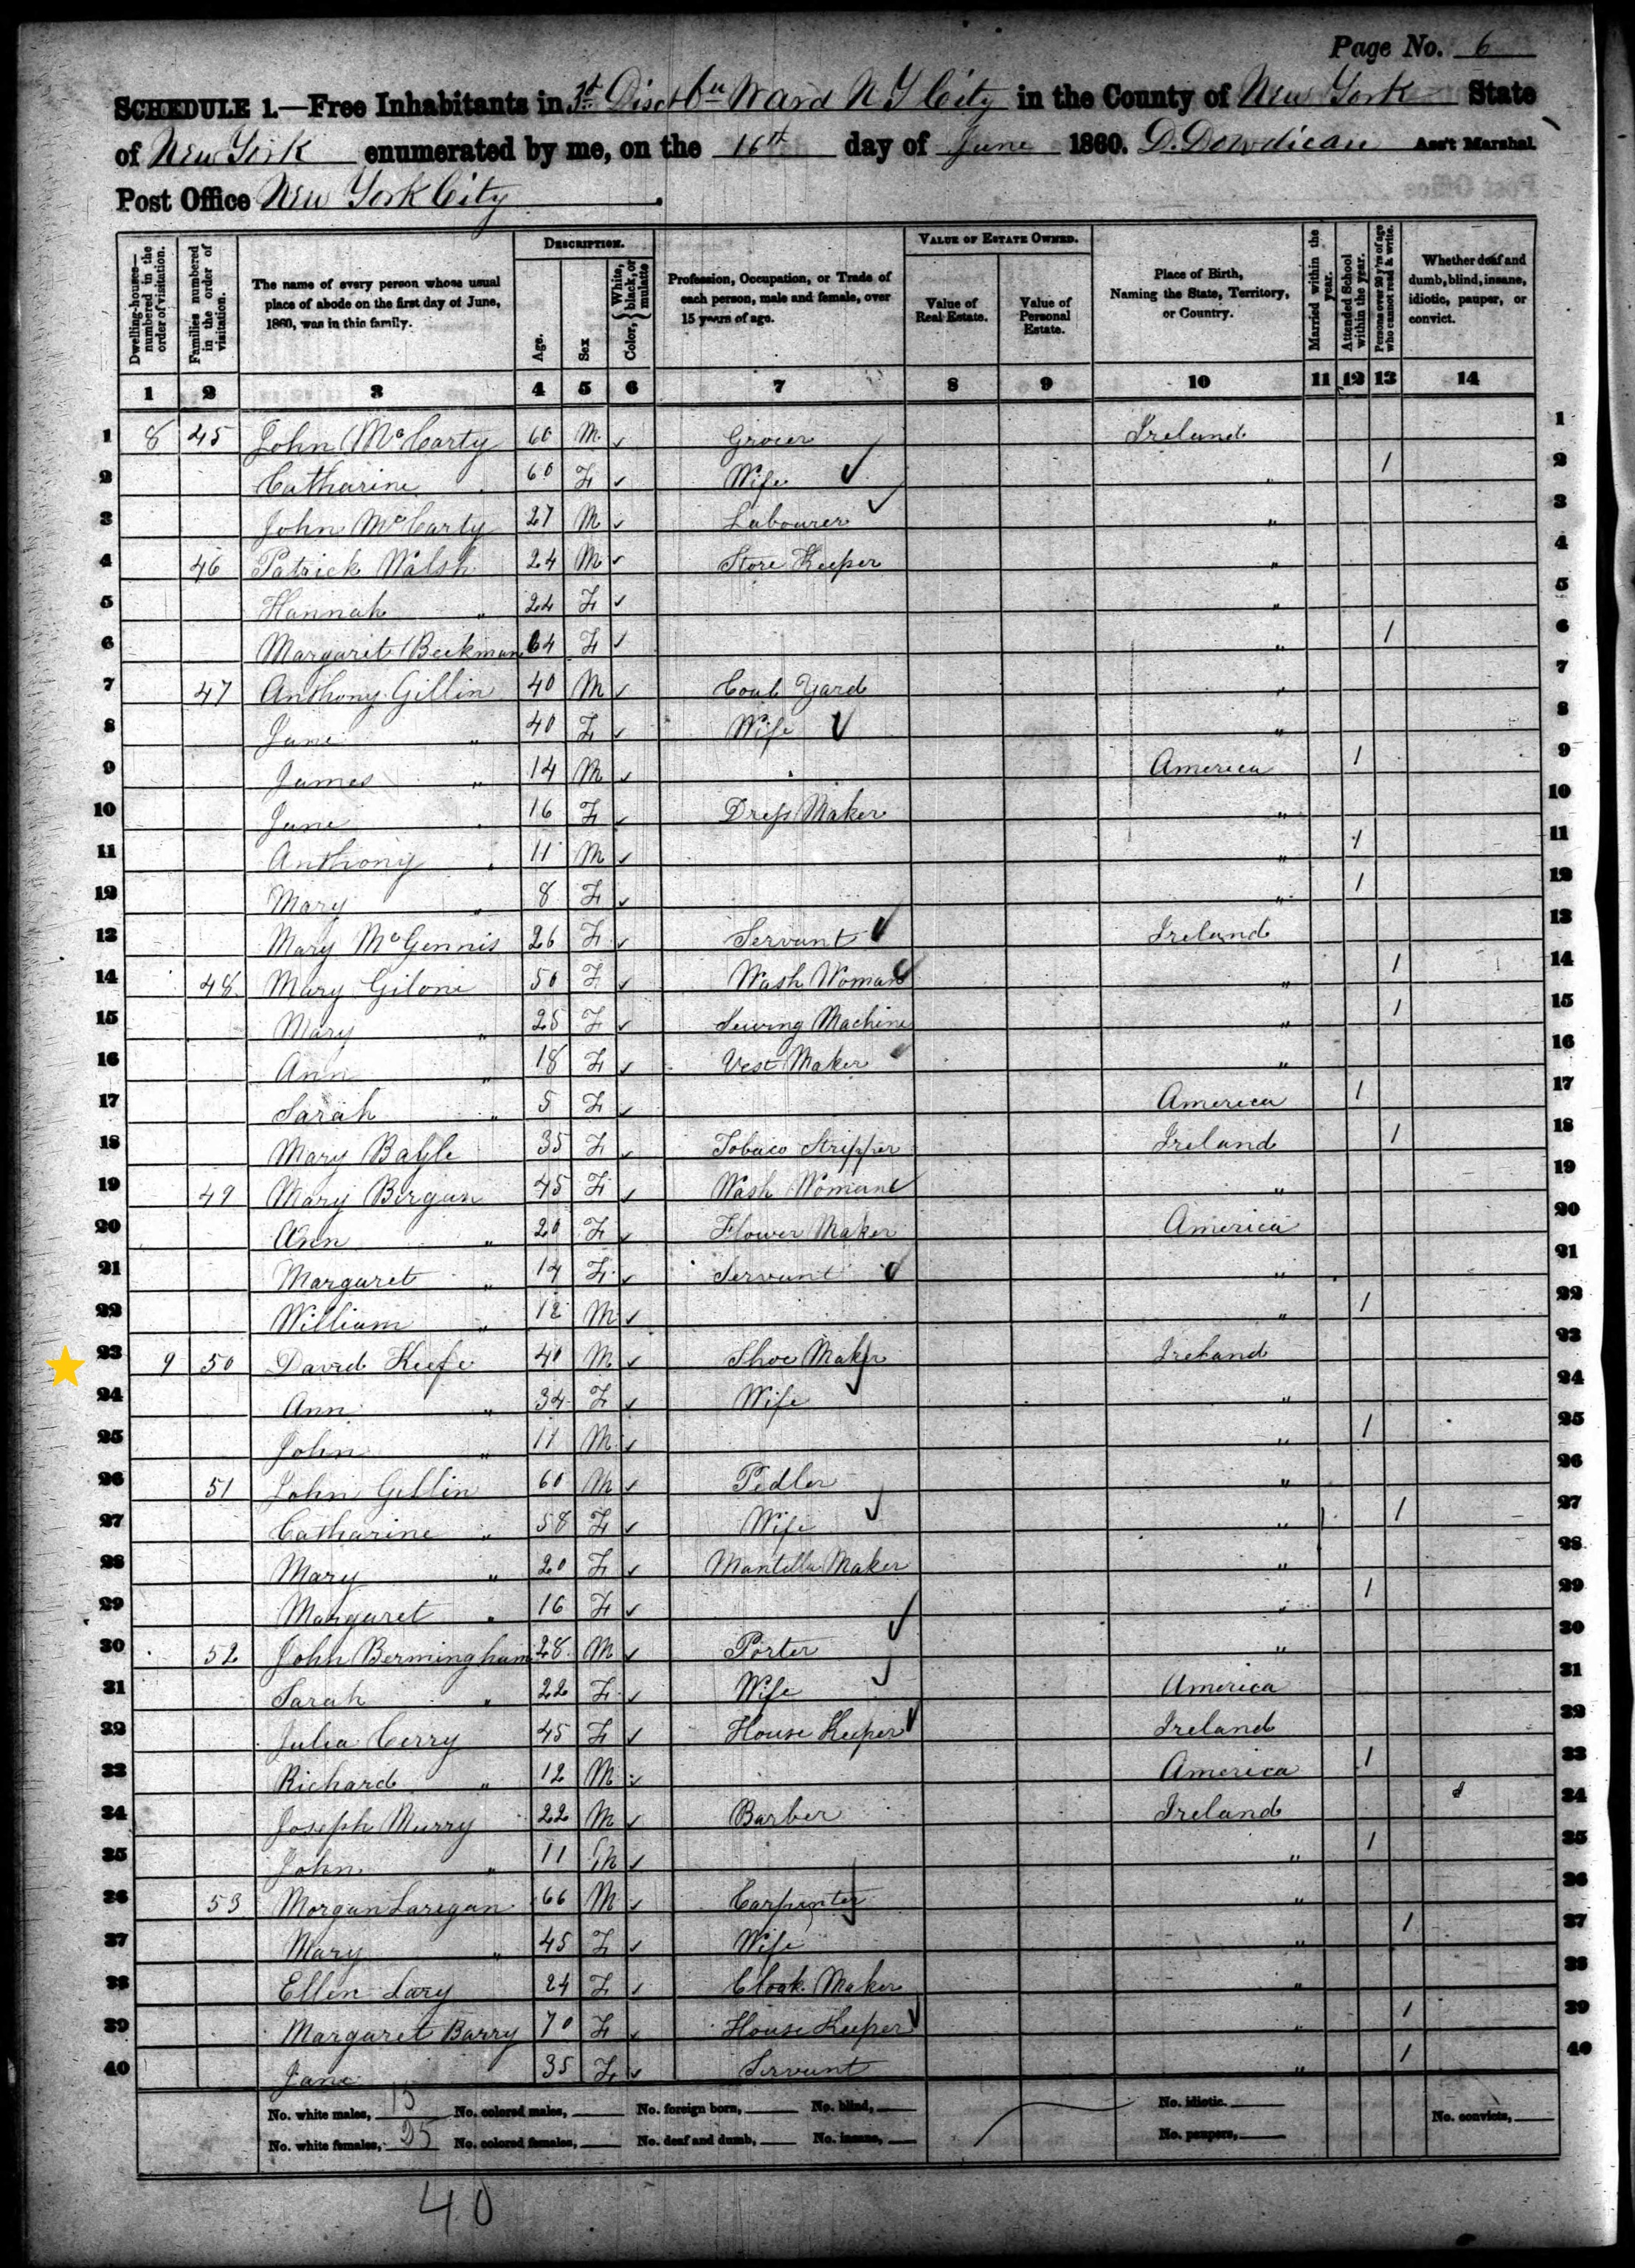 Page No. 6
SCHEDULE 1.—Free Inhabitants in 1st Dist 6th Ward N Y City in the County of New York State
of New York enumerated by me, on the 16th day of June 1860. D. Dowdican Ass't Marshal
Post Office New York City
DESCRIPTION. VALUE OF ESTATE OWNED.
Dwelling-houses— numbered in the order of visitation. Families numbered in the order of visitation. The name of every person whose usual place of abode on the first day of June, 1860, was in this family. Age. Sex Color, {White, black, or mulatto Profession, Occupation, or Trade of each person, male and female, over 15 years of age. Value of Real Estate. Value of Personal Estate. Place of Birth, Naming the State, Territory, or Country. Married within the year. Attended School within the year. Persons over 20 y'rs of age who cannot read & write. Whether deaf and dumb, blind, insane, idiotic, pauper, or convict.
1 2 3 4 5 6 7 8 9 10 11 12 13 14
1 8 45 John McCarty 60 M Grocer Ireland 1
2 Catharine 60 F Wife " 1 2
3 John McCarty 27 M Labourer " 3
4 46 Patrick Walsh 24 M Store Keeper " 4
5 Hannah " 24 F " 5
6 Margaret Beekman 64 F " 1 6
7 47 Anthony Gillin 40 M Coal Yard " 7
8 Jane " 40 F Wife " 8
9 James " 14 M America 1 9
10 Jane " 16 F Dress Maker " 10
11 Anthony " 11 M " 1 11
12 Mary " 8 F " 1 12
13 Mary McGennis 26 F Servant Ireland 13
14 48 Mary Gilone 50 F Wash Woman " 1 14
15 Mary " 25 F Sewing Machine " 1 15
16 Ann " 18 F Vest Maker " 16
17 Sarah " 5 F America 1 17
18 Mary Bayle 35 F Tobaco Stripper Ireland 1 18
19 49 Mary Bergan 45 F Wash Woman " 19
20 Ann " 20 F Flower Maker America 20
21 Margaret " 14 F Servant " 21
22 William " 12 M " 1 22
23 9 50 David Keefe 40 M Shoe Maker Ireland 23
24 Ann " 34 F Wife " 24
25 John " 11 M " 1 25
26 51 John Gillin 60 M Pedler " 26
27 Catharine " 58 F Wife " 1 27
28 Mary " 20 F Mantilla Maker " 28
29 Margaret " 16 F " 1 29
30 52 John Bermingham 28 M Porter " 30
31 Sarah " 22 F Wife America 31
32 Julia Cerry 45 F House Keeper Ireland 32
33 Richard " 12 M America 1 33
34 Joseph Murry 22 M Barber Ireland 34
35 John " 11 M " 1 35
36 53 Morgan Laregan 66 M Carpenter " 36
37 Mary " 45 F Wife " 1 37
38 Ellen Lary 24 F Cloak Maker " 38
39 Margaret Barry 70 F House Keeper " 1 39
40 Jane 35 F Servant " 1 40
No. white males, 15 No. colored males, No. foreign born, No. blind, No. idiotic.
No. white females, 25 No. colored females, No. deaf and dumb, No. insane, No. paupers, No. convicts,
40